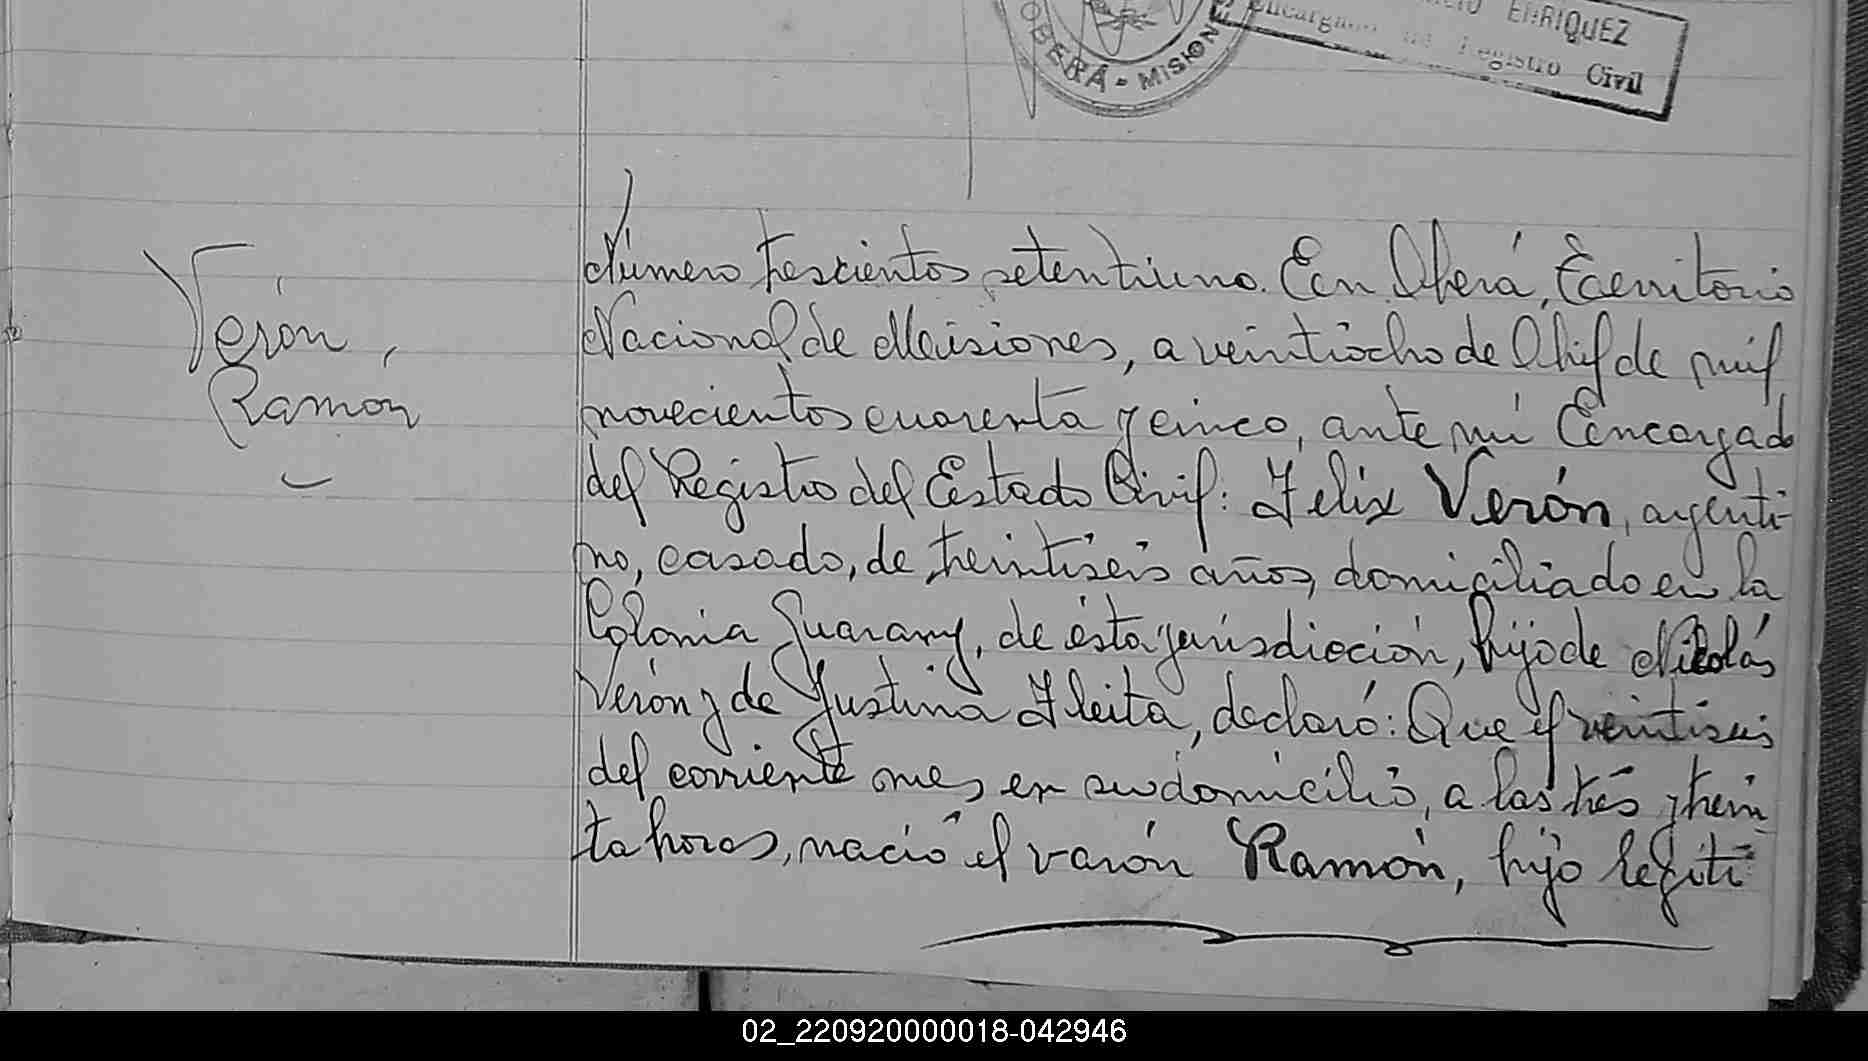 ENRIQUEZ
Encargado del Registro Civil
OBERÁ - MISIONES
Verón,
Ramón
Número trescientos setentiuno. En Oberá, Territorio
Nacional de Misiones, a veintiocho de Abril de mil
novecientos cuarenta y cinco, ante mí Encargado
del Registro del Estado Civil: Felix Verón, argenti-
no, casado, de treintiseis años, domiciliado en la
Colonia Guarany, de ésta jurisdicción, hijo de Nicolás
Verón y de Justina Fleita, declaró: Que el veintiseis
del corriente mes, en su domicilio, a las trés y trein
ta horas, nació el varón Ramón, hijo legíti-
02_220920000018-042946